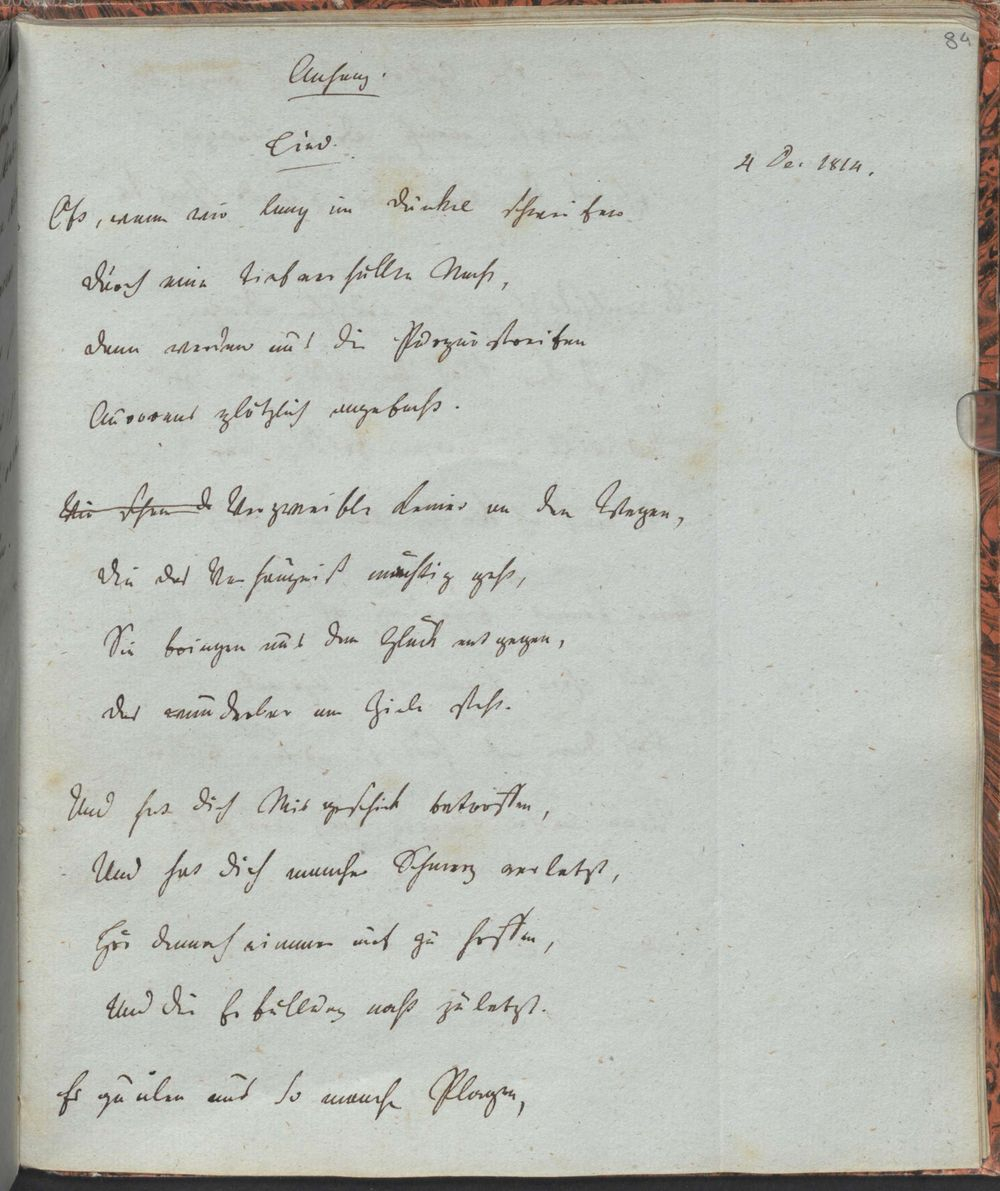 84
Anhang.
Lied.
4 Dec. 1814.
Oft, wenn wir lang im Dunkel schweifen
Durch eine tiefverhüllte Nacht,
Dann werden uns die Purpurstreifen
Aurorens plötzlich angefacht.
Wir sehen d Verzweifle keiner an den Wegen,
Die das Verhängniß mächtig geht,
Sie bringen uns dem Glück entgegen,
Das wunderbar am Ziele steht.
Und hat dich Misgeschick betroffen,
Und hat dich mancher Schmerz verletzt,
Hör dennoch nimmer auf zu hoffen,
Und die Erfüllung naht zuletzt.
Es quälen uns so manche Plagen,